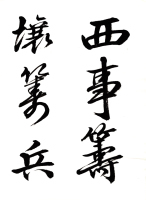 西事籌
壤籌兵